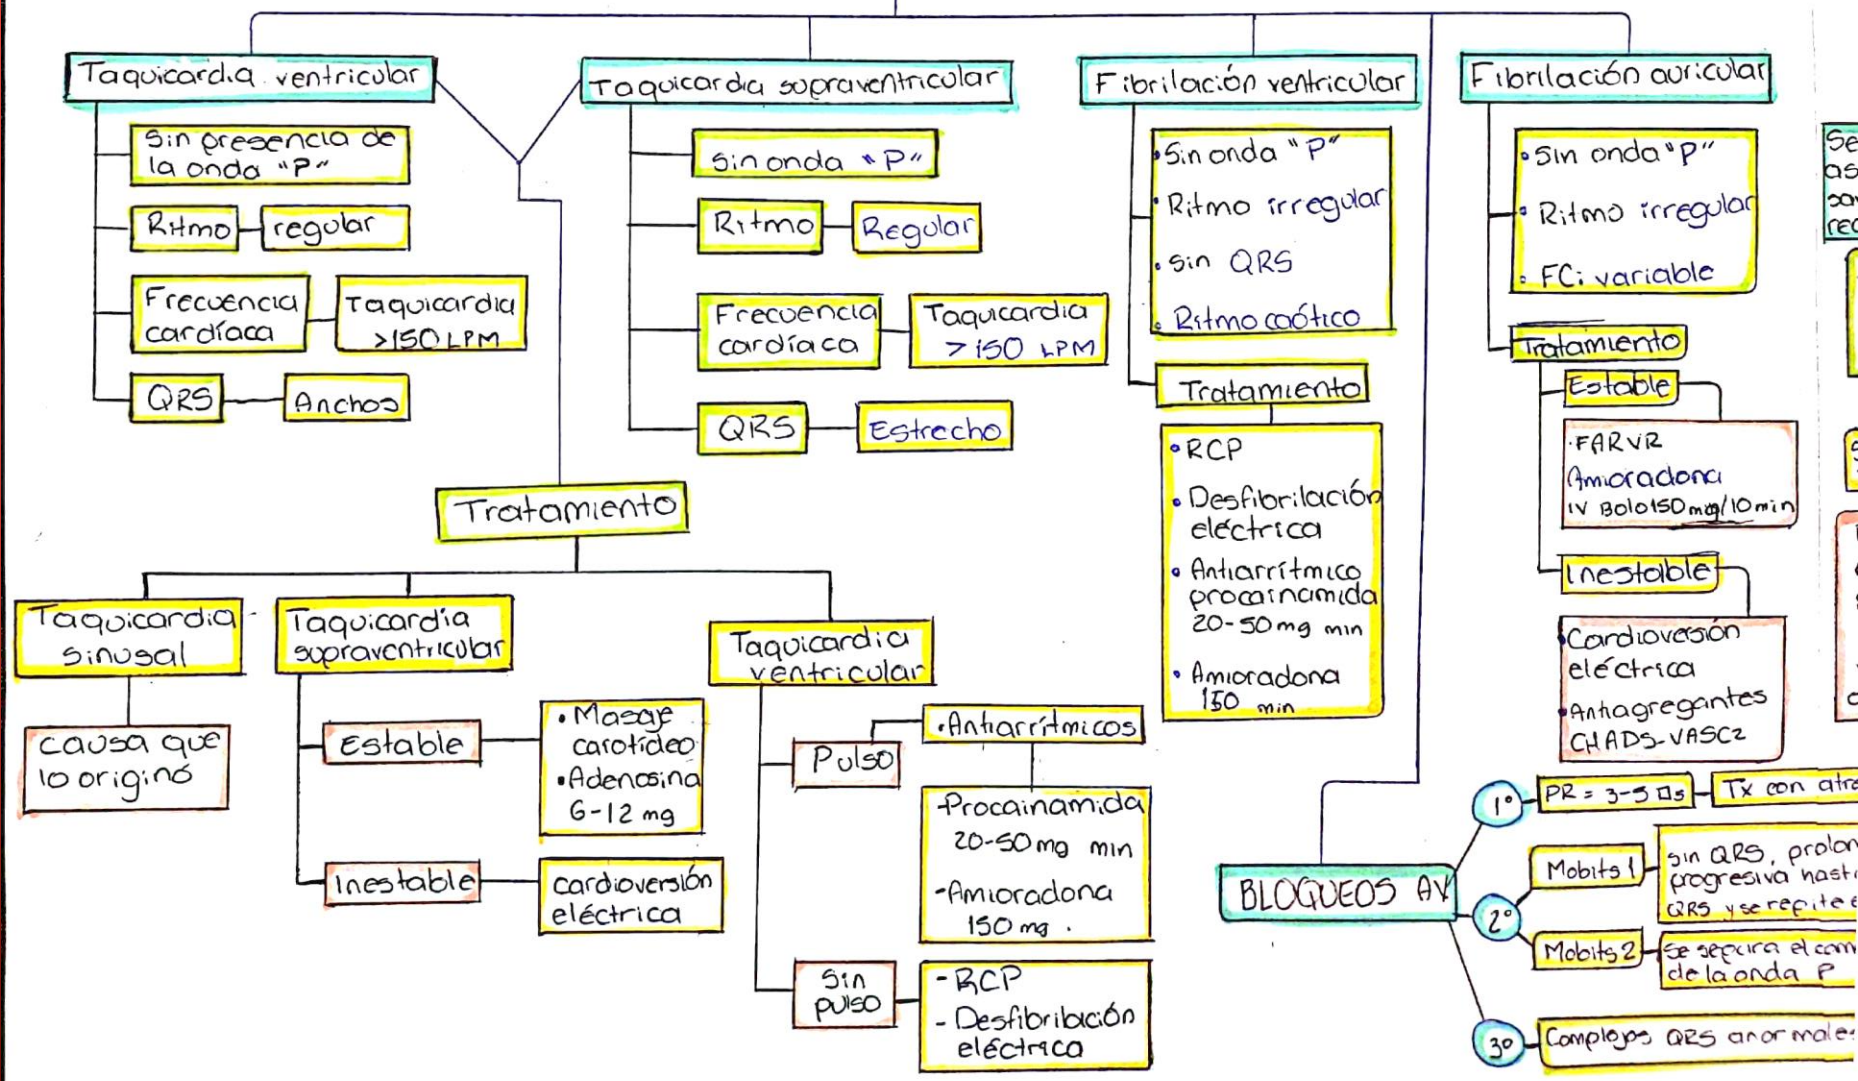 Taquicardia ventricular
Sin presencia de
la onda "P"
Ritmo
regular
Frecuencia
cardíaca
Taquicardia
>150 LPM
QRS
Anchos
Taquicardia supraventricular
Sin onda "P"
Ritmo
Regular
Frecuencia
cardíaca
Taquicardia
>150 LPM
QRS
Estrecho
Tratamiento
Taquicardia
sinusal
causa que
lo originó
Taquicardia
supraventricular
Estable
• Masaje
carotídeo
• Adenosina
6-12 mg
Inestable
cardioversión
eléctrica
Taquicardia
ventricular
Pulso
• Antiarrítmicos
-Procainamida
20-50 mg min
-Amioradona
150 mg.
Sin
pulso
- RCP
- Desfibrilación
eléctrica
Fibrilación ventricular
• Sin onda "P"
• Ritmo irregular
• Sin QRS
• Ritmo caótico
Tratamiento
• RCP
• Desfibrilación
eléctrica
• Antiarrítmico
procainamida
20-50 mg min
• Amioradona
150 min
Fibrilación auricular
• Sin onda "P"
• Ritmo irregular
• FC: variable
Tratamiento
Estable
• FARVR
Amioradona
IV Bolo 150 mg/10 min
Inestable
• Cardioversión
eléctrica
• Antiagregantes
CHADS-VASC2
BLOQUEOS AV
1°
PR = 3-5 □s
Tx con
2°
Mobits 1
sin QRS,
progresiva
QRS y se repite
Mobits 2
Se separa el
de la onda P
3°
Complejos QRS